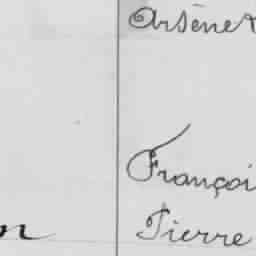 Arsène
Françoi
n
Pierre